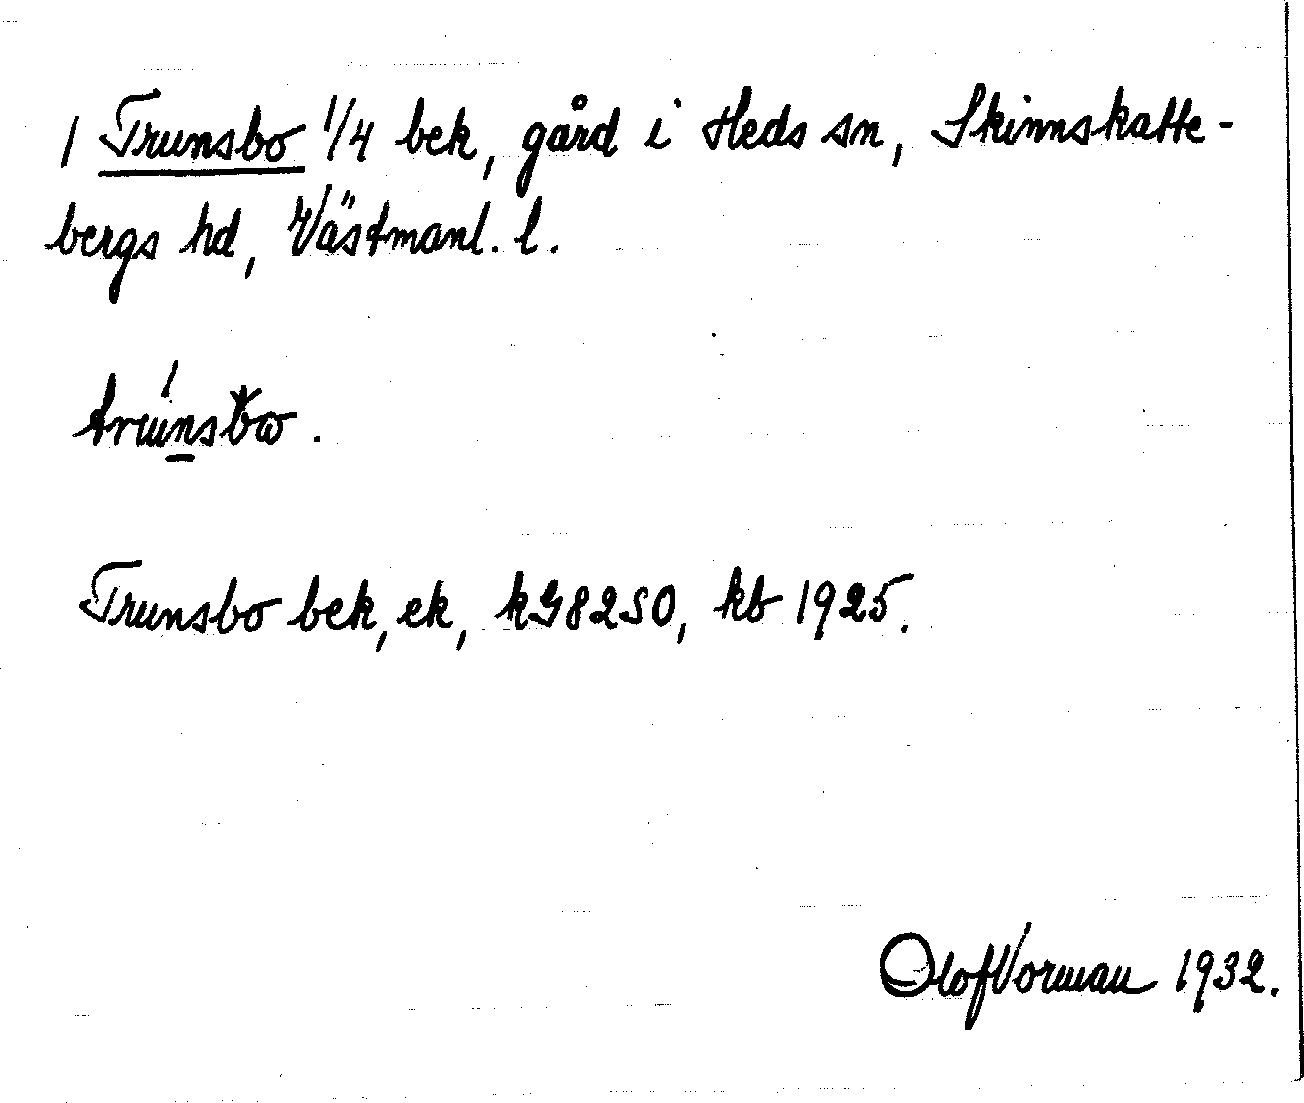 / Trunsbo 1/4 bek, gård i Heds sn, Skinnskatte-
bergs hd, Västmanl. l.
Trunsbo bek, ek, kG82SO, kb 1925.
Olof Vorman 1932.